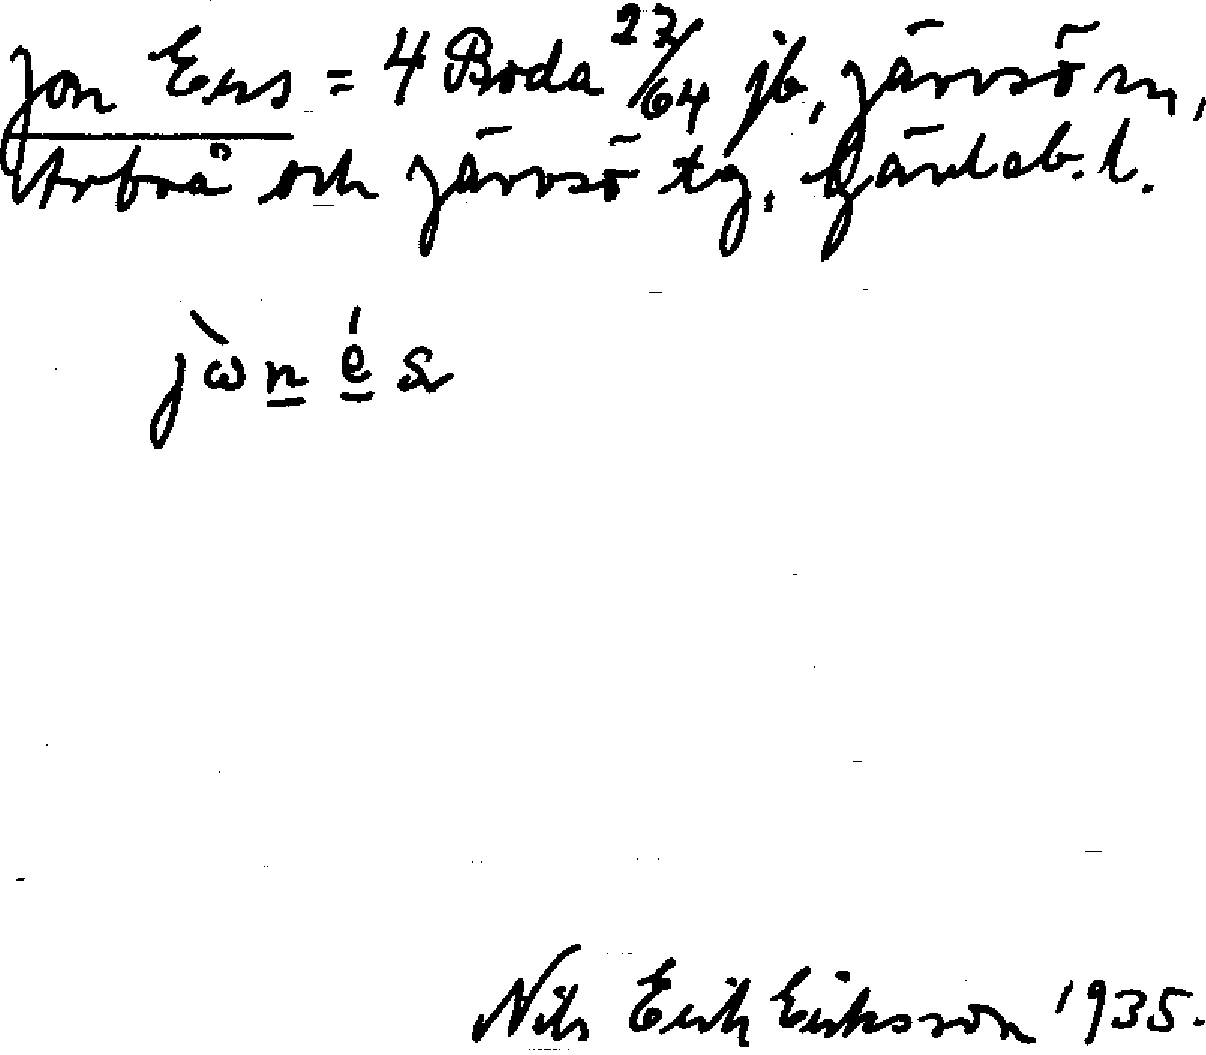 Jon Ers = 4 Boda 23/64 jb, Järvsö sn,
Arbrå och Järvsö tg, Gävleb. l.
jὼn é s
Nils Erik Eriksson 1935.